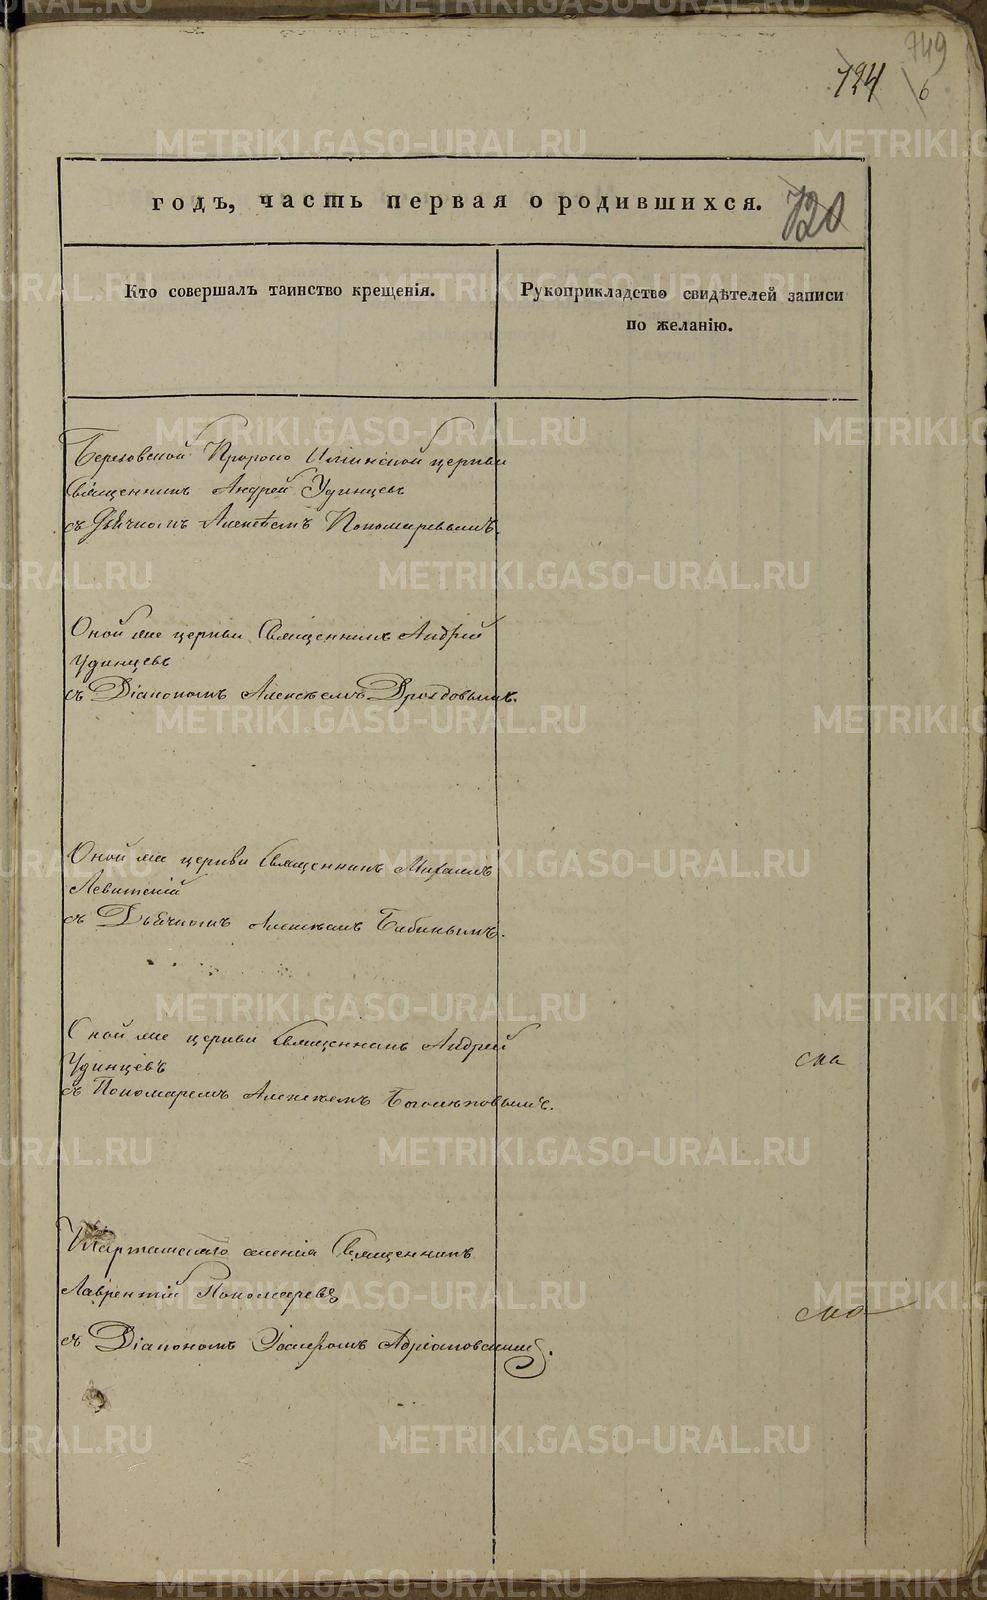 749
124 6
годъ, часть первая о родившихся.
720
Кто совершалъ таинство крещенія.
Рукоприкладство свидѣтелей записи
по желанію.
Березовской Пророко Ильинской церкви
Священникъ Андрей Удинцевъ
съ Дьячкомъ Алексѣемъ Пономаревымъ.
Оной же церкви Священникъ Андрей
Удинцевъ
съ Діакономъ Алексѣемъ Дроздовымъ.
Оной же церкви Священникъ Михаилъ
Левитскій
съ Дьячкомъ Алексѣемъ Бабинымъ.
Оной же церкви Священникъ Андрей
Удинцевъ
съ Пономаремъ Алексѣемъ Боголѣповымъ.
Шарташскаго селенія Священникъ
Лаврентій Пономаревъ
съ Діакономъ Іосифомъ Адріановскимъ.
METRIKI.GASO-URAL.RU